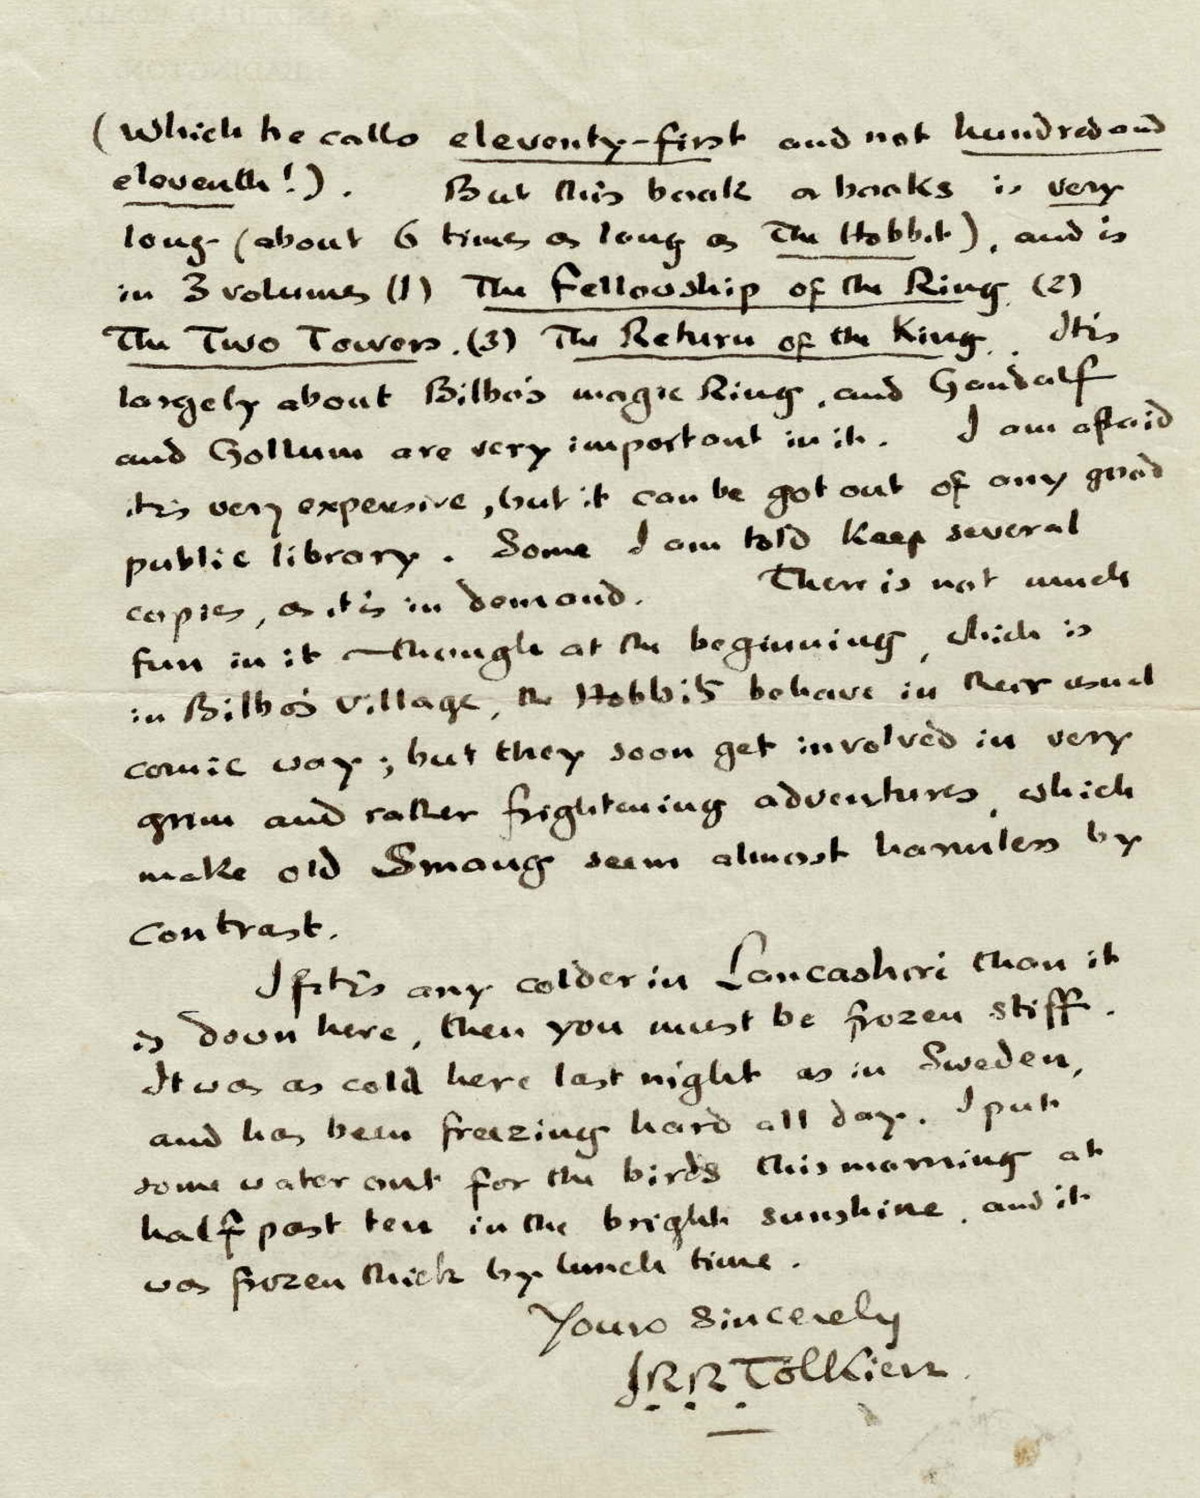 (which he calls eleventy-first and not hundred and
eleventh!). But this book or books is very
long (about 6 times as long as The Hobbit), and is
in 3 volumes (1) The Fellowship of the Ring. (2)
The Two Towers. (3) The Return of the King. It is
largely about Bilbo's magic Ring, and Gandalf
and Gollum are very important in it. I am afraid
it is very expensive, but it can be got out of any good
public library. Some I am told keep several
copies, as it is in demand. There is not much
fun in it — though at the beginning, which is
in Bilbo's village, the Hobbits behave in their usual
comic way; but they soon get involved in very
grim and rather frightening adventures, which
make old Smaug seem almost harmless by
contrast.
If it is any colder in Lancashire than it
is down here, then you must be frozen stiff.
It was as cold here last night as in Sweden,
and has been freezing hard all day. I put
some water out for the birds this morning at
half past ten in the bright sunshine, and it
was frozen thick by lunch time.
Yours sincerely
J.R.R. Tolkien.